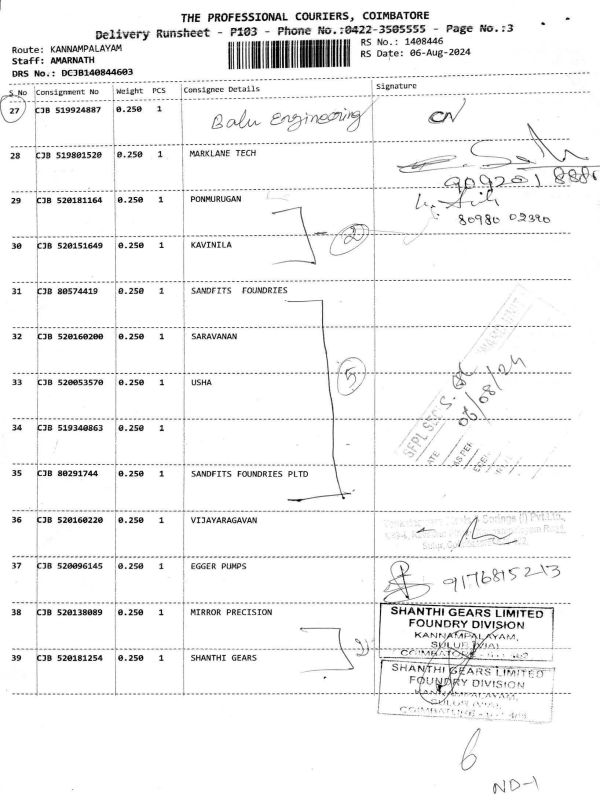 THE PROFESSIONAL COURIERS, COIMBATORE
Delivery Runsheet - P103 - Phone No.:0422-3505555 - Page No.:3
Route: KANNAMPALAYAM
RS No.: 1408446
Staff: AMARNATH
RS Date: 06-Aug-2024
DRS No.: DCJB140844603
S.No Consignment No Weight PCS Consignee Details Signature
27 CJB 519924887 0.250 1 Balu Engineering CN
28 CJB 519801520 0.250 1 MARKLANE TECH
29 CJB 520181164 0.250 1 PONMURUGAN
80980 02390
2
30 CJB 520151649 0.250 1 KAVINILA
31 CJB 80574419 0.250 1 SANDFITS FOUNDRIES
32 CJB 520160200 0.250 1 SARAVANAN
5
33 CJB 520053570 0.250 1 USHA
06/08/24
34 CJB 519340863 0.250 1
35 CJB 80291744 0.250 1 SANDFITS FOUNDRIES PLTD
36 CJB 520160220 0.250 1 VIJAYARAGAVAN
37 CJB 520096145 0.250 1 EGGER PUMPS
9176815213
38 CJB 520138089 0.250 1 MIRROR PRECISION
SHANTHI GEARS LIMITED
FOUNDRY DIVISION
KANNAMPALAYAM,
SULUR (VIA)
39 CJB 520181254 0.250 1 SHANTHI GEARS
SHANTHI GEARS LIMITED
FOUNDRY DIVISION
6
ND-1